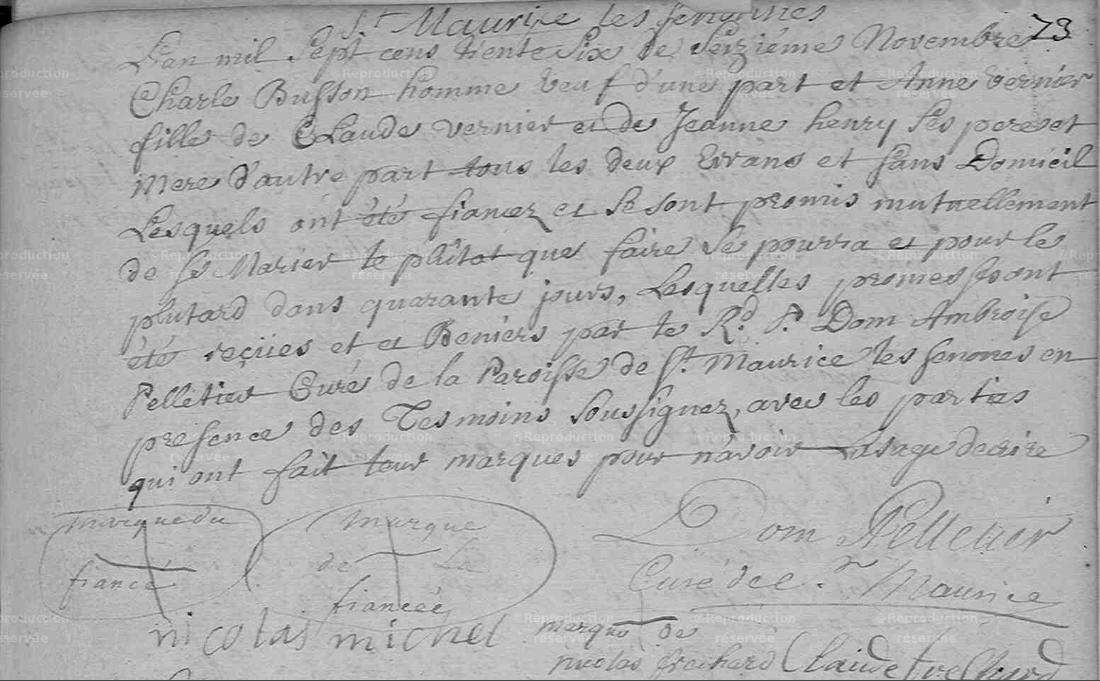 St. Maurice les senonnes
73
L'an mil sept cens trente six le seizième Novembre
Charle Busson homme veuf d'une part et Anne vernier
fille de Claude vernier et de Jeanne henry ses pere et
mere d'autre part tous les deux Errans et sans Domicil
Lesquels ont été fiancez et se sont promis mutuellement
de se Marier le plûtot que faire se pourra et pour le
plutard dans quarante jours, Lesquelles promesses ont
été reçües et et Beniers par le Rd. P. Dom Ambroise
Pelletier Curé de la Paroisse de St. Maurice les senones en
presence des Tesmoins soussignez, avec les parties
qui ont fait leur marques pour n'avoir usage decrire
marque du
fiancé
Marque
de La
fiancée
Dom Pelletier
Curé de St. Maurice
nicolas michel
marque de
nicolas frechard
Claude frechard